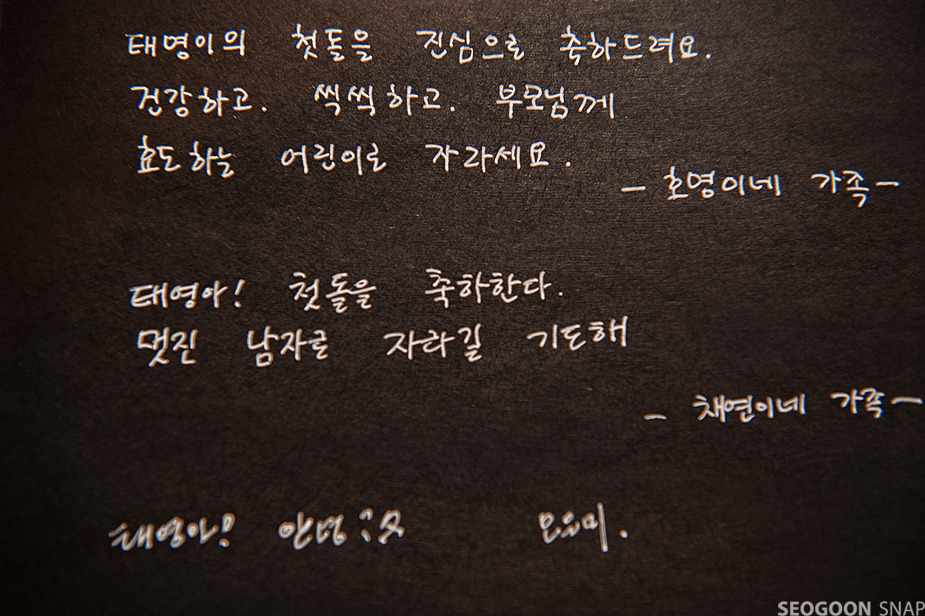 태영이의 첫돌을 진심으로 축하드려요.
건강하고. 씩씩하고. 부모님께
효도하는 어린이로 자라세요.
- 호영이네 가족 -
태영아! 첫돌을 축하한다.
멋진 남자로 자라길 기도해
- 채연이네 가족 -
태영아! 안녕
SEOGOON SNAP